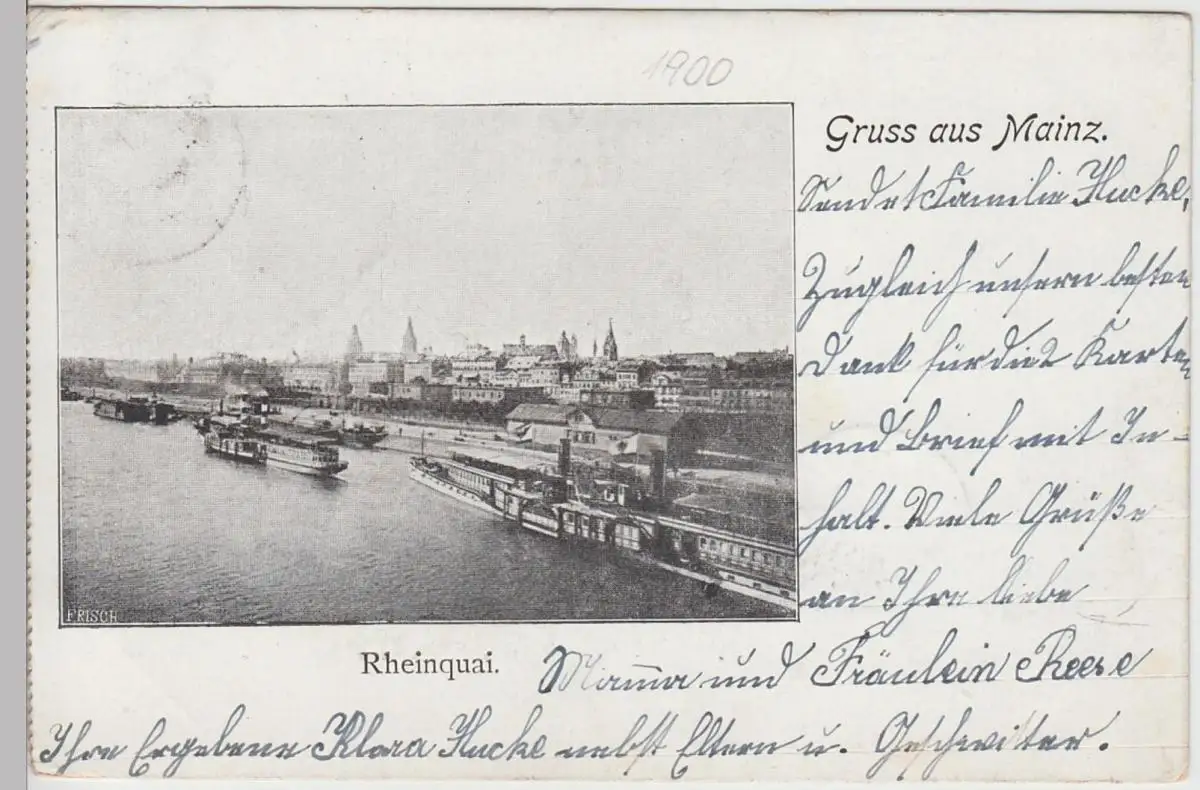 1900
Gruss aus Mainz.
Sendet Familie Hucke,
Zugleich unsern besten
Dank für die 2 Karten
und Brief mit In-
halt. Viele Grüße
an Ihre liebe
Mama und Fräulein Reese
Ihre Ergebene Klara Hucke nebst Eltern u. Geschwister.
FRISCH
Rheinquai.